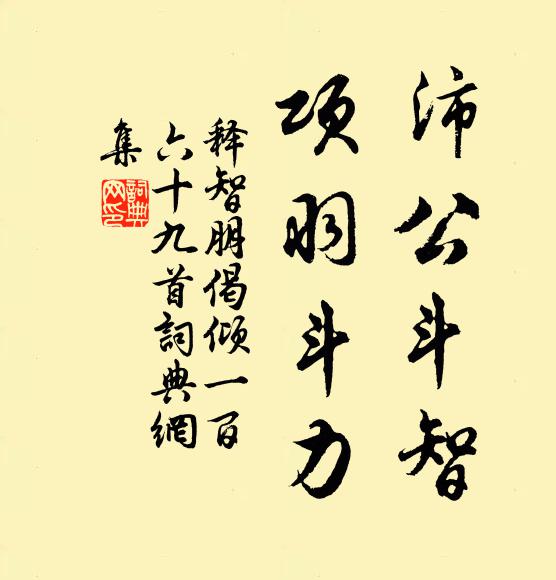 沛公斗智
项羽斗力
释智朋偈倾一百
六十九首詞典網
集
詞典網印